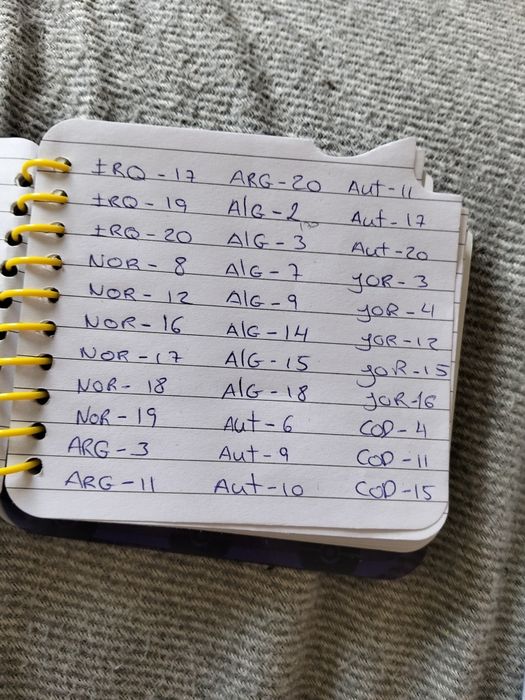 IRQ - 17
IRQ - 19
IRQ - 20
NOR - 8
NOR - 12
NOR - 16
NOR - 17
NOR - 18
NOR - 19
ARG - 3
ARG - 11
ARG - 20
AlG - 2
AlG - 3
AlG - 7
AlG - 9
AlG - 14
AlG - 15
AlG - 18
Aut - 6
Aut - 9
Aut - 10
Aut - 11
Aut - 17
Aut - 20
JOR - 3
JOR - 4
JOR - 12
JOR - 15
JOR - 16
COD - 4
COD - 11
COD - 15